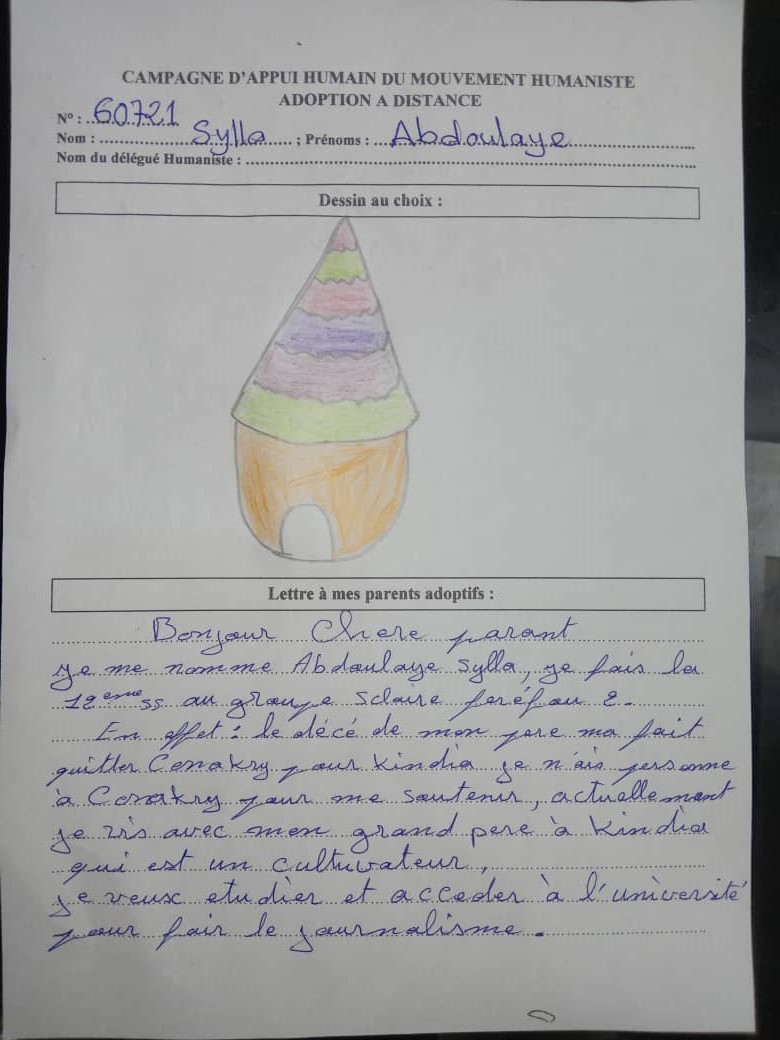 CAMPAGNE D'APPUI HUMAIN DU MOUVEMENT HUMANISTE
ADOPTION A DISTANCE
N° : 60721
Nom : Sylla ; Prénoms : Abdoulaye
Nom du délégué Humaniste :
Dessin au choix :
Lettre à mes parents adoptifs :
Bonjour Chere parant
je me nomme Abdoulaye Sylla, je fais la
12eme ss au groupe sclaire feréfou 2.
En effet : le décé de mon pere ma fait
quitter Conakry pour Kindia je n'ais personne
à Conakry pour me soutenir, actuellemant
je vis avec mon grand pere à Kindia
qui est un cultuvateur,
je veux etudier et acceder à l'université
pour fair le journalisme.